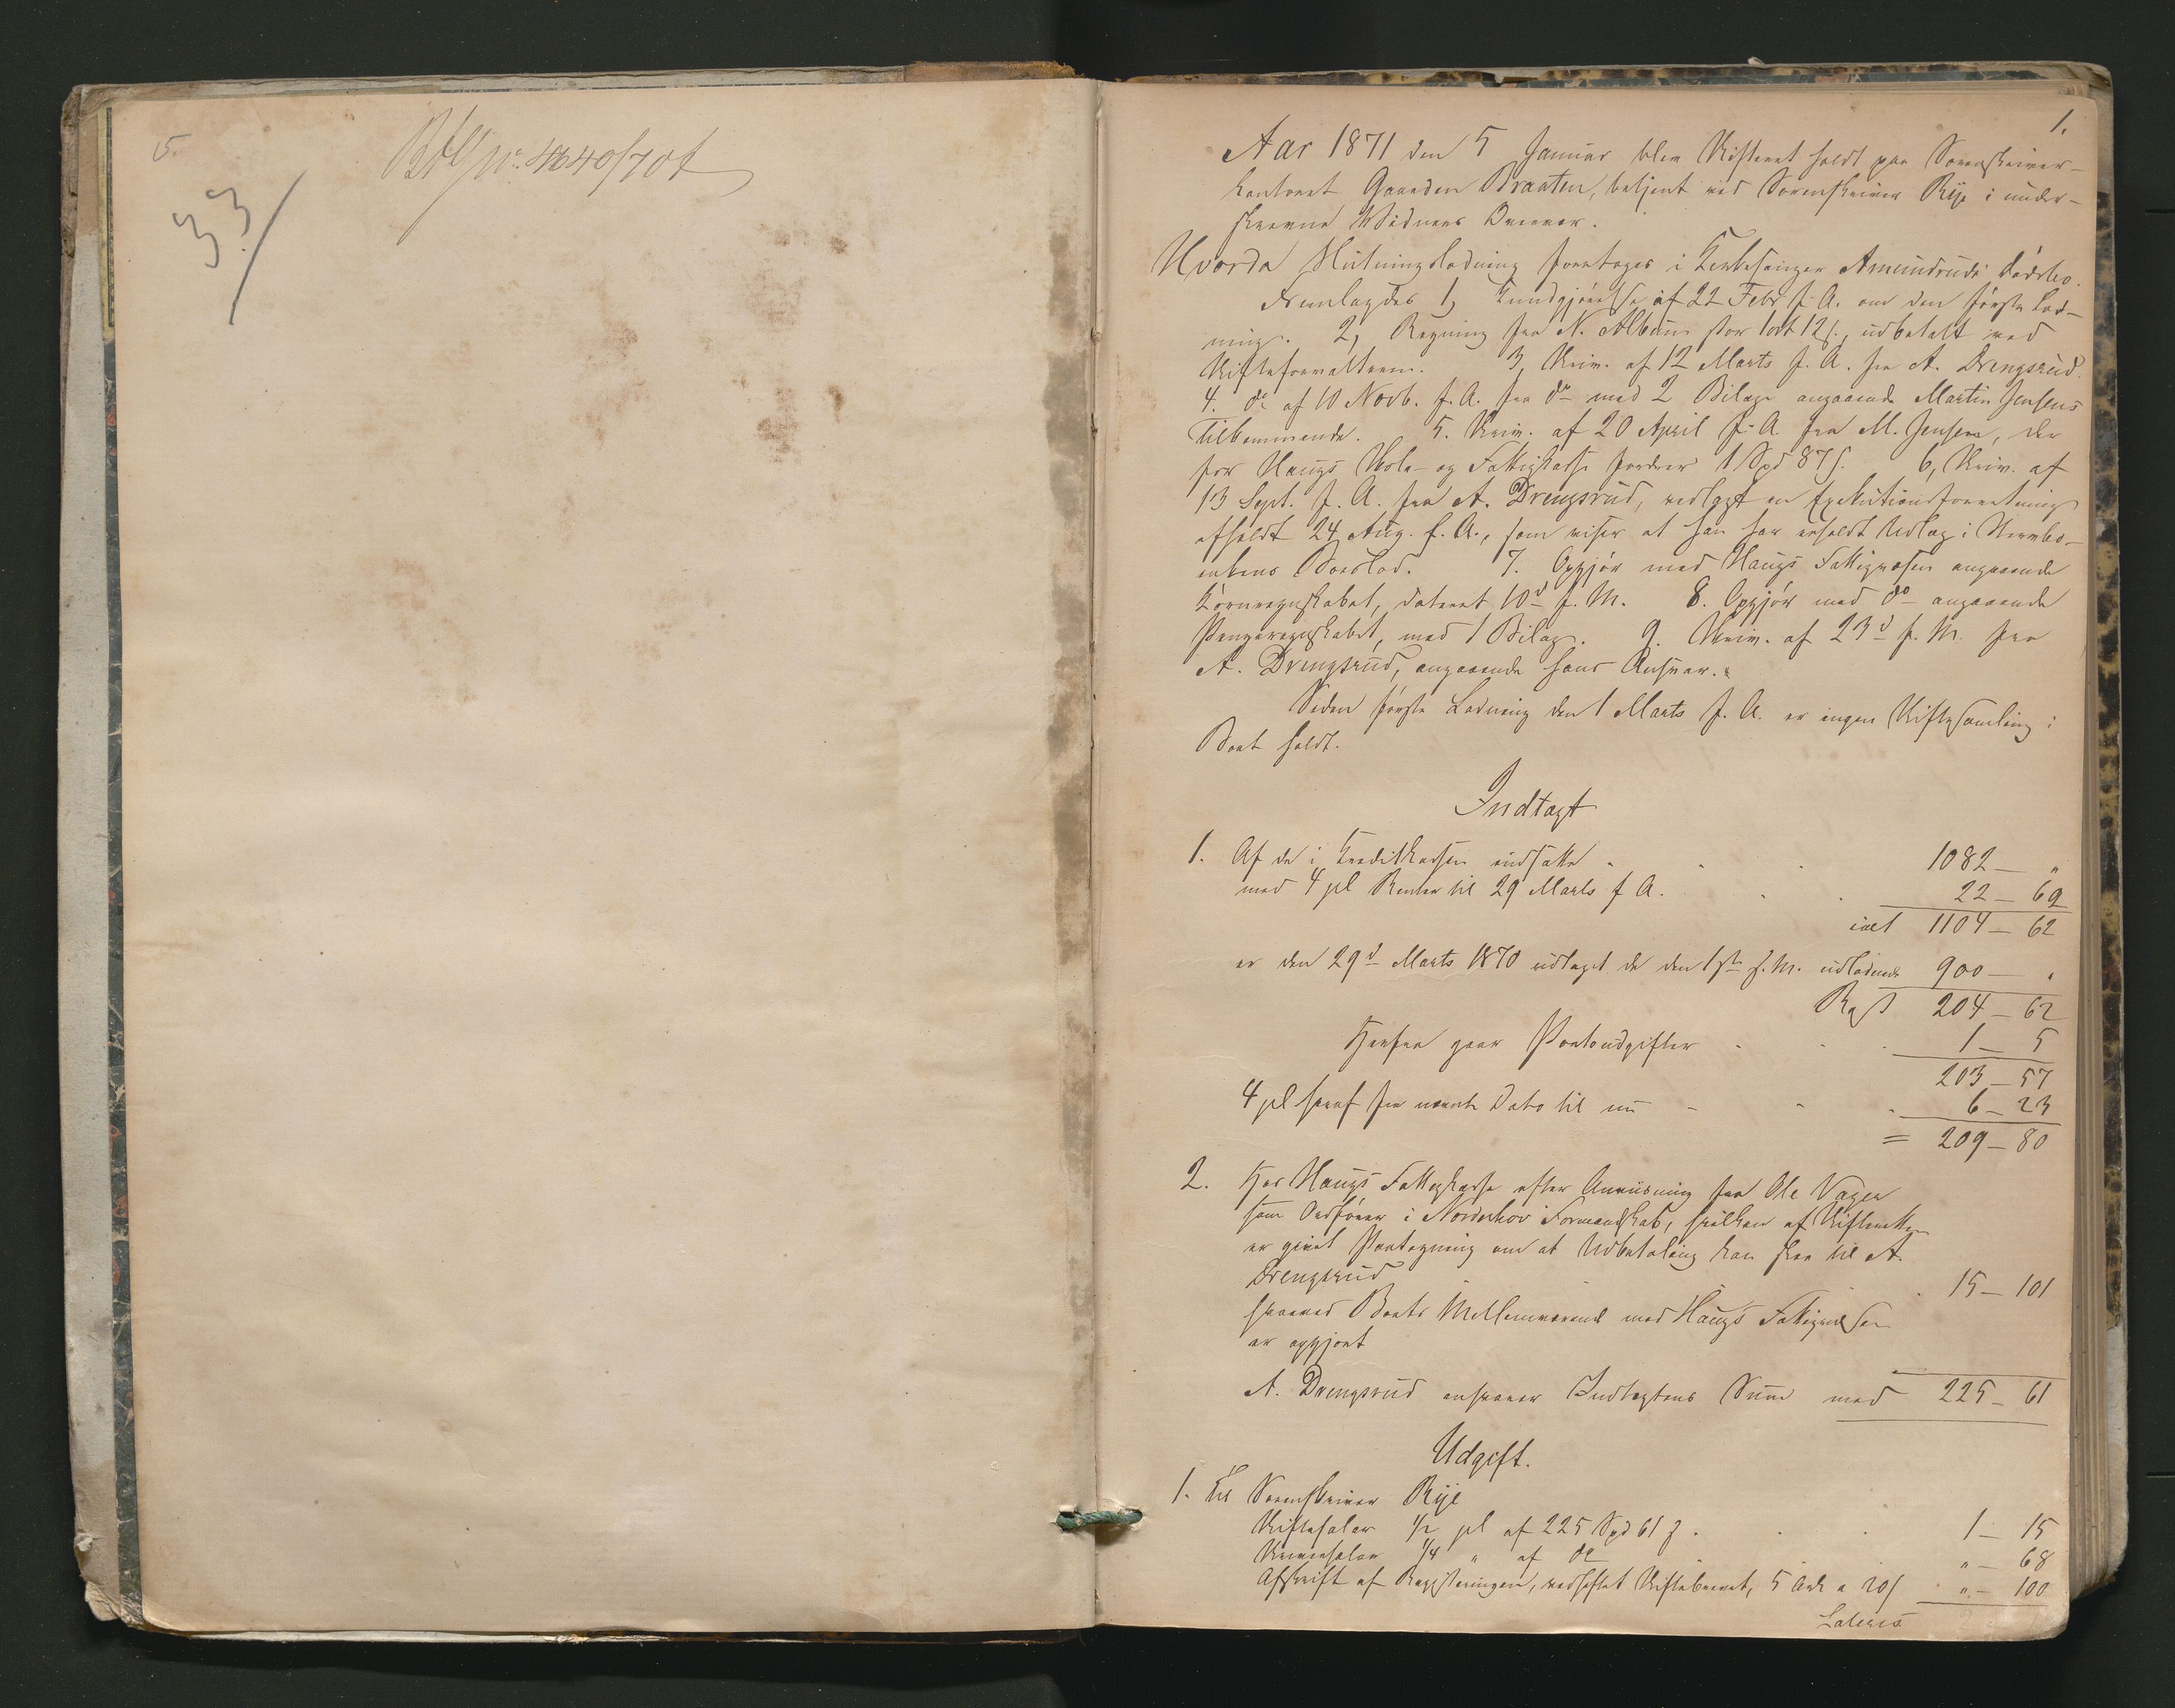 5.
33
1.
Aar 1871 den 5 Januar blev Skifteret holdt paa Sorenskriver-
kontoret Gaarden Braaten, betjent ved Sorenskriver Rye i under-
skrevne Vidners Overvær.
Hvorda Slutningslodning foretages i Amundruds dødsbo.
Fremlagdes 1, Kundgjørelse af 22 Febr f. A. om den første Lod-
ning. 2, Regning fra N. Album stor 1 ort 12 s., udbetalt med
Skifteforvalteren. 3, Skriv. af 12 Marts f. A. fra A. Drengsrud.
4. do af 10 Novb. f. A. fra do med 2 Bilage angaaende Martin Jensens
Tilkommende. 5. Skriv. af 20 April f. A. fra M. Jensen, der
for Haugs Skole- og Fattigkasse fordrer 1 Spd 87 s. 6, Skriv. af
13 Sept. f. A. fra A. Drengsrud, vedlagt en Exekutionsforretning
afholdt 24 Aug. f. A., som viser at han har erholdt Udlæg i
Boeslod. 7. Opgjør med Haugs Fattigvæsen angaaende
Kornregnskabet, dateret 10d f. M. 8. Opgjør med do angaaende
Pengeregnskabet, med 1 Bilag. 9. Skriv. af 23d f. M. fra
A. Drengsrud, angaaende hans Ansvar.
Siden første Lodning den 1 Marts f. A. er ingen Skiftesamling i
Boet holdt.
Indtægt
1. Af de i Kreditkassen indsatte 1082 — "
med 4 pCt Renter til 29 Marts f A. 22 — 62
ialt 1104 — 62
er den 29d Marts 1870 udtaget de den 1ste s. M. udlodede 900 — "
Rest 204 — 62
Herfra gaar Portoudgifter 1 — 5
203 — 57
4 pCt heraf fra nævnte Dato til nu 6 — 23
= 209 — 80
2. Hos Haugs Fattigkasse efter Anvisning fra Ole Vager
som Ordfører i Norderhov Formandskab, hvilken af Skifteretten
er givet Paategning om at Udbetaling kan skee til A.
Drengsrud 15 — 101
hvorved Boets Mellemværende med Haugs Fattigvæsen
er opgjort
A. Drengsrud ansvarer Indtægtens Sum med 225 — 61
Udgift.
1. Til Sorenskriver Rye
Skiftesalær 1/2 pCt af 225 Spd 61 s 1 — 15
Skriversalær 1/4 " af do " — 68
Afskrift af Registeringen, vedheftet Skiftebrevet, 5 Ark a 20 s " — 100
Lateris